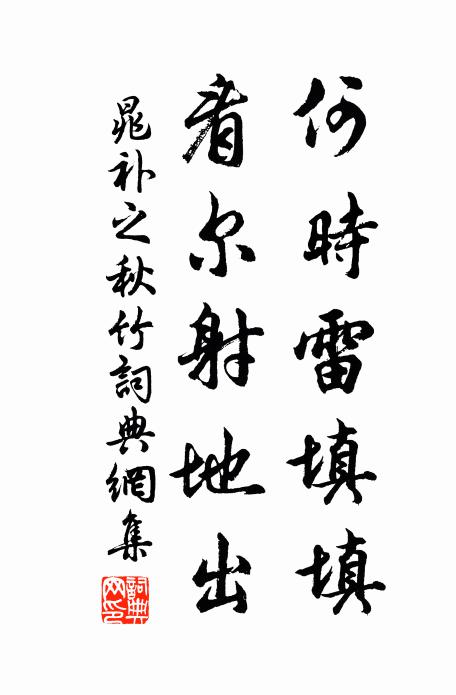 何時雷填填
看尔射地出
晁补之秋竹詞典網集
詞典網印